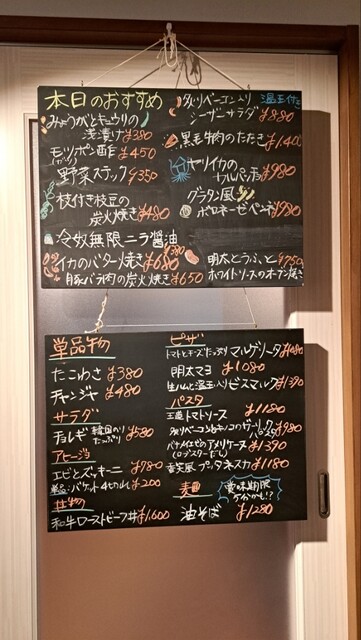 本日のおすすめ
みょうがとキュウリの
浅漬け ¥380
モツポン酢 ¥450
野菜スティック ¥350
枝付き枝豆の
炭火焼き ¥480
冷奴無限ニラ醤油
¥380
イカのバター焼き ¥680
豚バラ肉の炭火焼き ¥650
炙りベーコン入り 温玉付き
シーザーサラダ ¥880
黒毛牛肉のたたき ¥1400
ヤリイカの
カルパッチョ ¥980
グラタン風
ボロネーゼペンネ ¥980
明太とうふと ¥750
ホワイトソースのオーブン焼き
単品物
たこわさ ¥380
チャンジャ ¥480
サラダ
チョレギ 韓国のり たっぷり ¥580
アヒージョ
エビとズッキーニ ¥980
単品:バケット4切れ ¥200
丼物
和牛ローストビーフ丼 ¥1,600
ピザ
トマトとチーズたっぷり マルゲリータ ¥1080
明太マヨ ¥1080
生ハムと温玉入り ビスマルク ¥1390
パスタ
王道トマトソース ¥1180
炙りベーコンとキノコのガーリックパスタ ¥980
バナメイエビのアメリケーヌ ¥1390
(ロブスターだし)
娼婦風 プッタネスカ ¥1180
麺 賞味期限
5分かも!?
油そば ¥1280